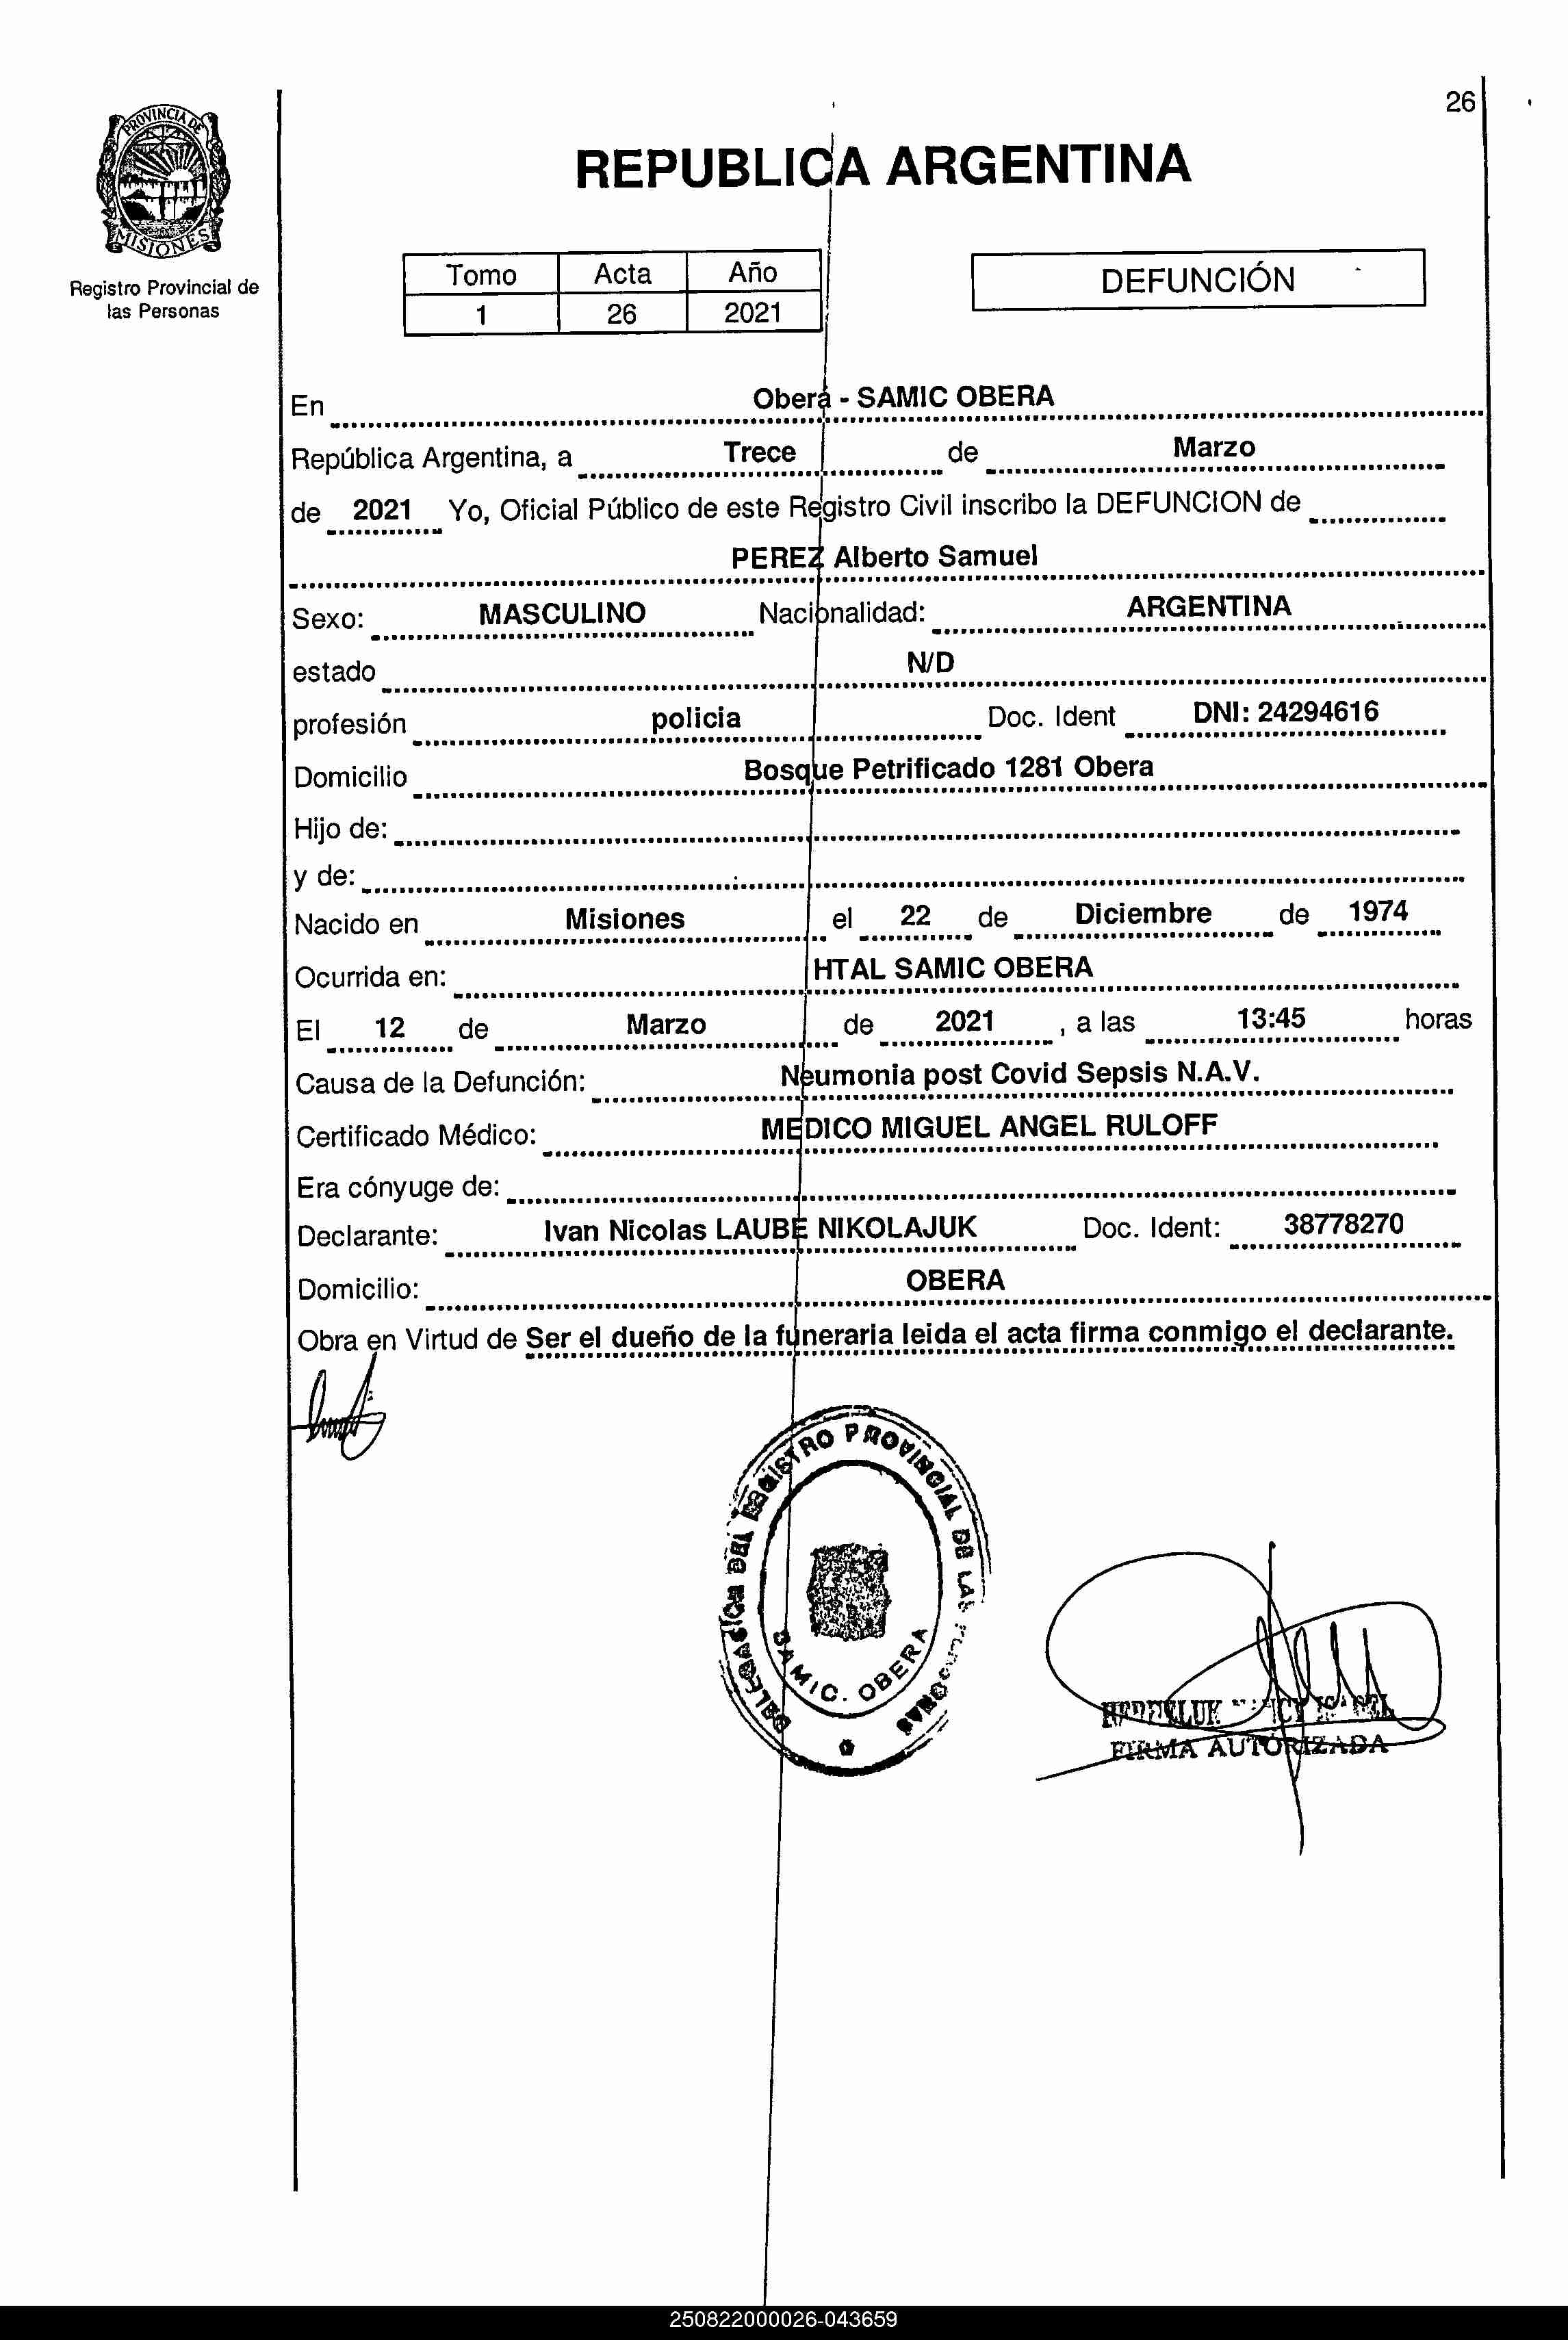 26
PROVINCIA DE
MISIONES
Registro Provincial de
las Personas
REPUBLICA ARGENTINA
Tomo Acta Año
1 26 2021
DEFUNCIÓN
En Oberá - SAMIC OBERA
República Argentina, a Trece de Marzo
de 2021 Yo, Oficial Público de este Registro Civil inscribo la DEFUNCION de
PEREZ Alberto Samuel
Sexo: MASCULINO Nacionalidad: ARGENTINA
estado N/D
profesión policia Doc. Ident DNI: 24294616
Domicilio Bosque Petrificado 1281 Obera
Hijo de:
y de:
Nacido en Misiones el 22 de Diciembre de 1974
Ocurrida en: HTAL SAMIC OBERA
El 12 de Marzo de 2021 , a las 13:45 horas
Causa de la Defunción: Neumonia post Covid Sepsis N.A.V.
Certificado Médico: MEDICO MIGUEL ANGEL RULOFF
Era cónyuge de:
Declarante: Ivan Nicolas LAUBE NIKOLAJUK Doc. Ident: 38778270
Domicilio: OBERA
Obra en Virtud de Ser el dueño de la funeraria leida el acta firma conmigo el declarante.
DELEGACION DEL REGISTRO PROVINCIAL DE LAS PERSONAS
SAMIC. OBERA
FIRMA AUTORIZADA
250822000026-043659